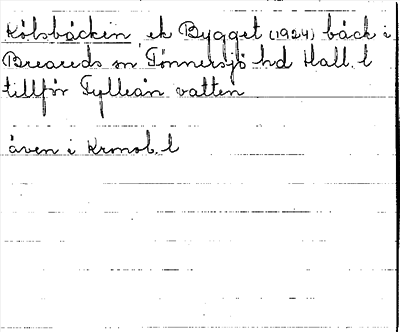 Kölsbäcken ek Bygget (1924) bäck i
Breareds sn Tönnersjö hd Hall. l
tillför Fylleån vatten
även i Kronob. l